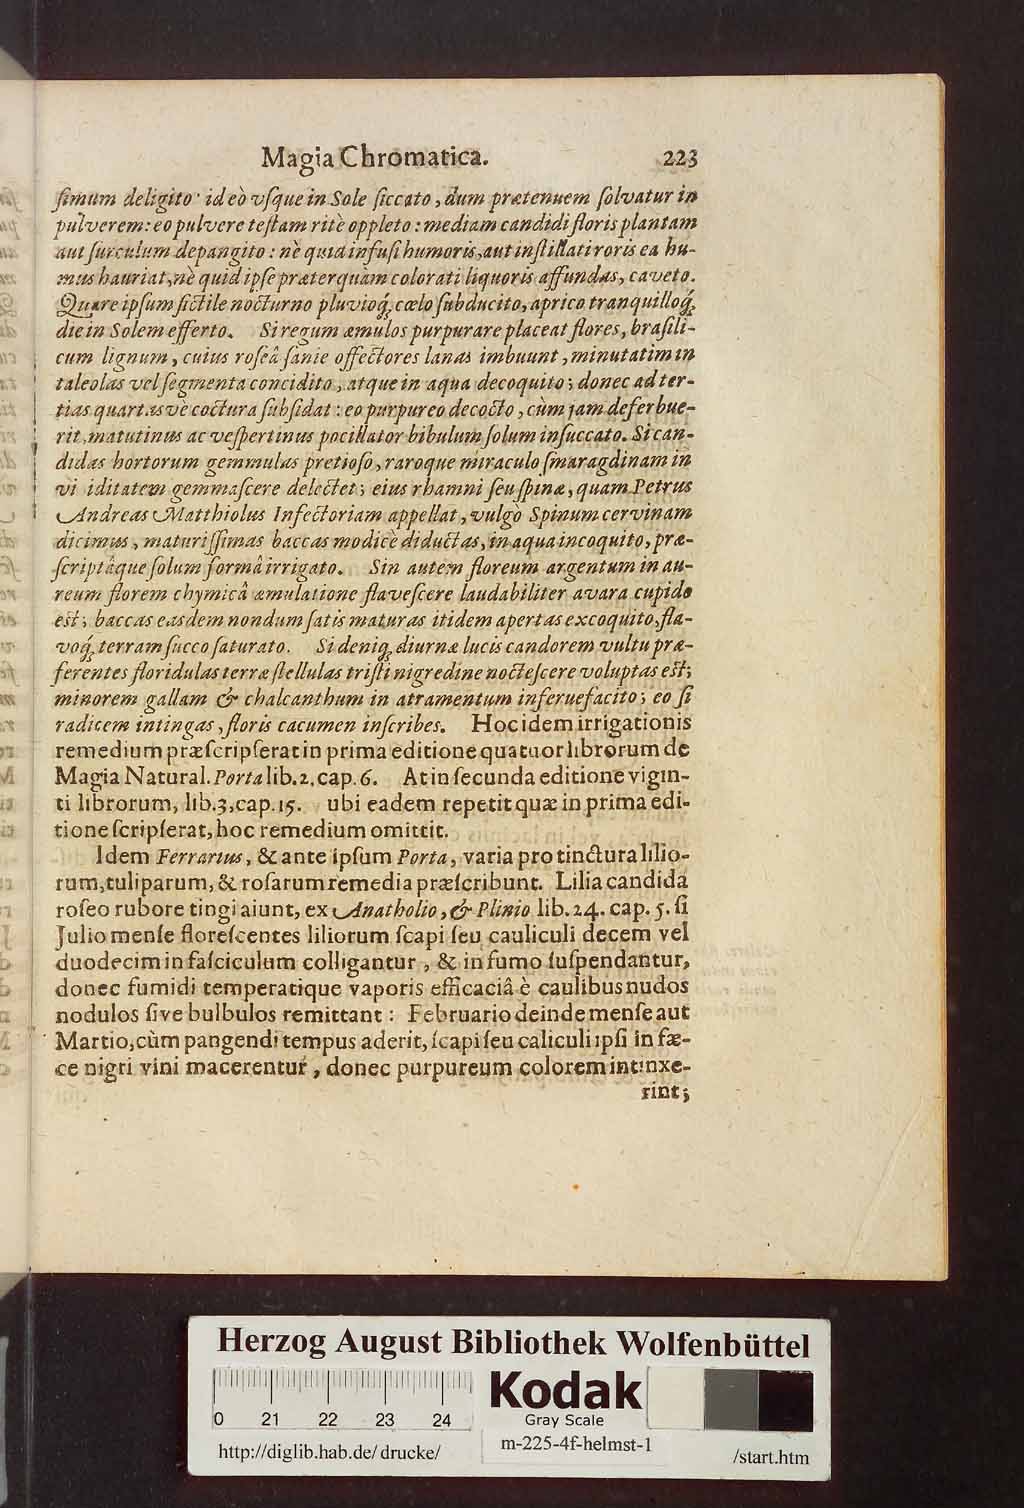 Magia Chromatica. 223
ſimum deligito: ideò vſque in Sole ſiccato, dum prætenuem ſolvatur in
pulverem: eo pulvere teſtam ritè oppleto: mediam candidi floris plantam
aut ſurculum depangito: nè quid infuſi humoris, aut inſtillati roris ea hu-
mus hauriat, nè quid ipſe præterquàm colorati liquoris affundas, caveto.
Quare ipſum fictile nocturno pluvioq́; cœlo ſubducito, aprico tranquilloq́;
die in Solem efferto. Si regum æmulos purpurare placeat flores, braſili-
cum lignum, cuius roſeâ ſanie offectores lanas imbuunt, minutatim in
taleolas vel ſegmenta concidito, atque in aqua decoquito; donec ad ter-
tias quartasve coctura ſubſidat: eo purpureo decocto, cùm jam deferbue-
rit, matutinus ac veſpertinus pocillator bibulum ſolum inſuccato. Si can-
didas hortorum gemmulas pretioſo, raroque miraculo ſmaragdinam in
viriditatem gemmaſcere delectet; eius rhamni ſeu ſpinæ, quam Petrus
Andreas Matthiolus Infectoriam appellat, vulgò Spinum cervinam
dicimus, maturiſſimas baccas modicè diductas, in aqua incoquito, præ-
ſcriptâque ſolum formâ irrigato. Sin autem floreum argentum in au-
reum florem chymicâ æmulatione flaveſcere laudabiliter avara cupido
eſt; baccas easdem nondum ſatis maturas itidem apertas excoquito, fla-
voq́; terram ſucco ſaturato. Si deniq́; diurnæ lucis candorem vultu præ-
ferentes floridulas terræ ſtellulas triſti nigredine nocteſcere voluptas eſt;
minorem gallam & chalcanthum in atramentum inferuefacito; eo ſi
radicem intingas, floris cacumen inſcribes. Hoc idem irrigationis
remedium præſcripſerat in prima editione quatuor librorum de
Magia Natural. Porta lib. 2. cap. 6. At in ſecunda editione vigin-
ti librorum, lib. 3, cap. 15. ubi eadem repetit quæ in prima edi-
tione ſcripſerat, hoc remedium omittit.
Idem Ferrarius, & ante ipſum Porta, varia pro tinctura lilio-
rum, tuliparum, & roſarum remedia præſcribunt. Lilia candida
roſeo rubore tingi aiunt, ex Anatholio, & Plinio lib. 24. cap. 5. ſi
Julio menſe floreſcentes liliorum ſcapi ſeu cauliculi decem vel
duodecim in faſciculum colligantur, & in fumo ſuſpendantur,
donec fumidi temperatique vaporis efficaciâ è caulibus nudos
nodulos ſive bulbulos remittant: Februario deinde menſe aut
Martio, cùm pangendi tempus aderit, ſcapi ſeu caliculi ipſi in fæ-
ce nigri vini macerentur, donec purpureum colorem intinxe-
rint;
Herzog August Bibliothek Wolfenbüttel
0 21 22 23 24
Kodak
Gray Scale
http://diglib.hab.de/drucke/
m-225-4f-helmst-1
/start.htm